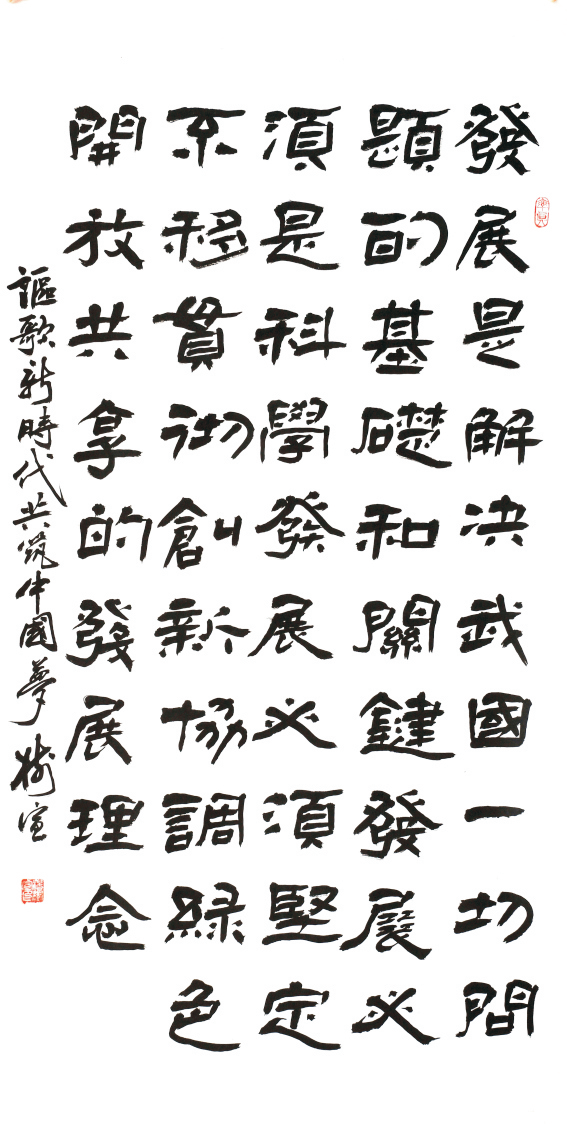 發展是解决我國一切問
題的基礎和關鍵發展必
須是科學發展必須堅定
不移貫彻創新協調綠色
開放共享的發展理念
謳歌新時代共筑中國夢 樹宣